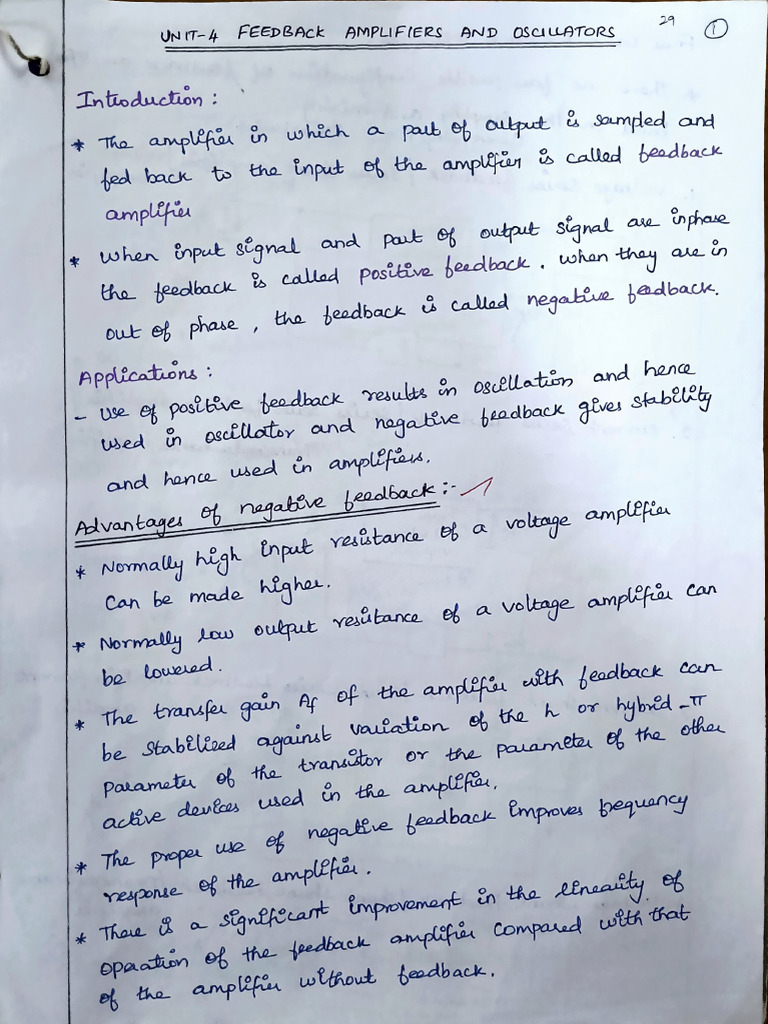 29 1
UNIT-4 FEEDBACK AMPLIFIERS AND OSCILLATORS
Introduction :
* The amplifier in which a part of output is sampled and
fed back to the input of the amplifier is called feedback
amplifier
* When input signal and part of output signal are inphase
the feedback is called positive feedback. when they are in
out of phase, the feedback is called negative feedback.
Applications :
- Use of positive feedback results in oscillation and hence
used in oscillator and negative feedback gives stability
and hence used in amplifiers.
Advantages of negative feedback :-
* Normally high input resistance of a voltage amplifier
can be made higher.
* Normally low output resistance of a voltage amplifier can
be lowered.
* The transfer gain Af of the amplifier with feedback can
be stabilized against variation of the h or hybrid-π
parameter of the transistor or the parameter of the other
active devices used in the amplifier.
* The proper use of negative feedback improves frequency
response of the amplifier.
* There is a significant improvement in the linearity of
operation of the feedback amplifier compared with that
of the amplifier without feedback.